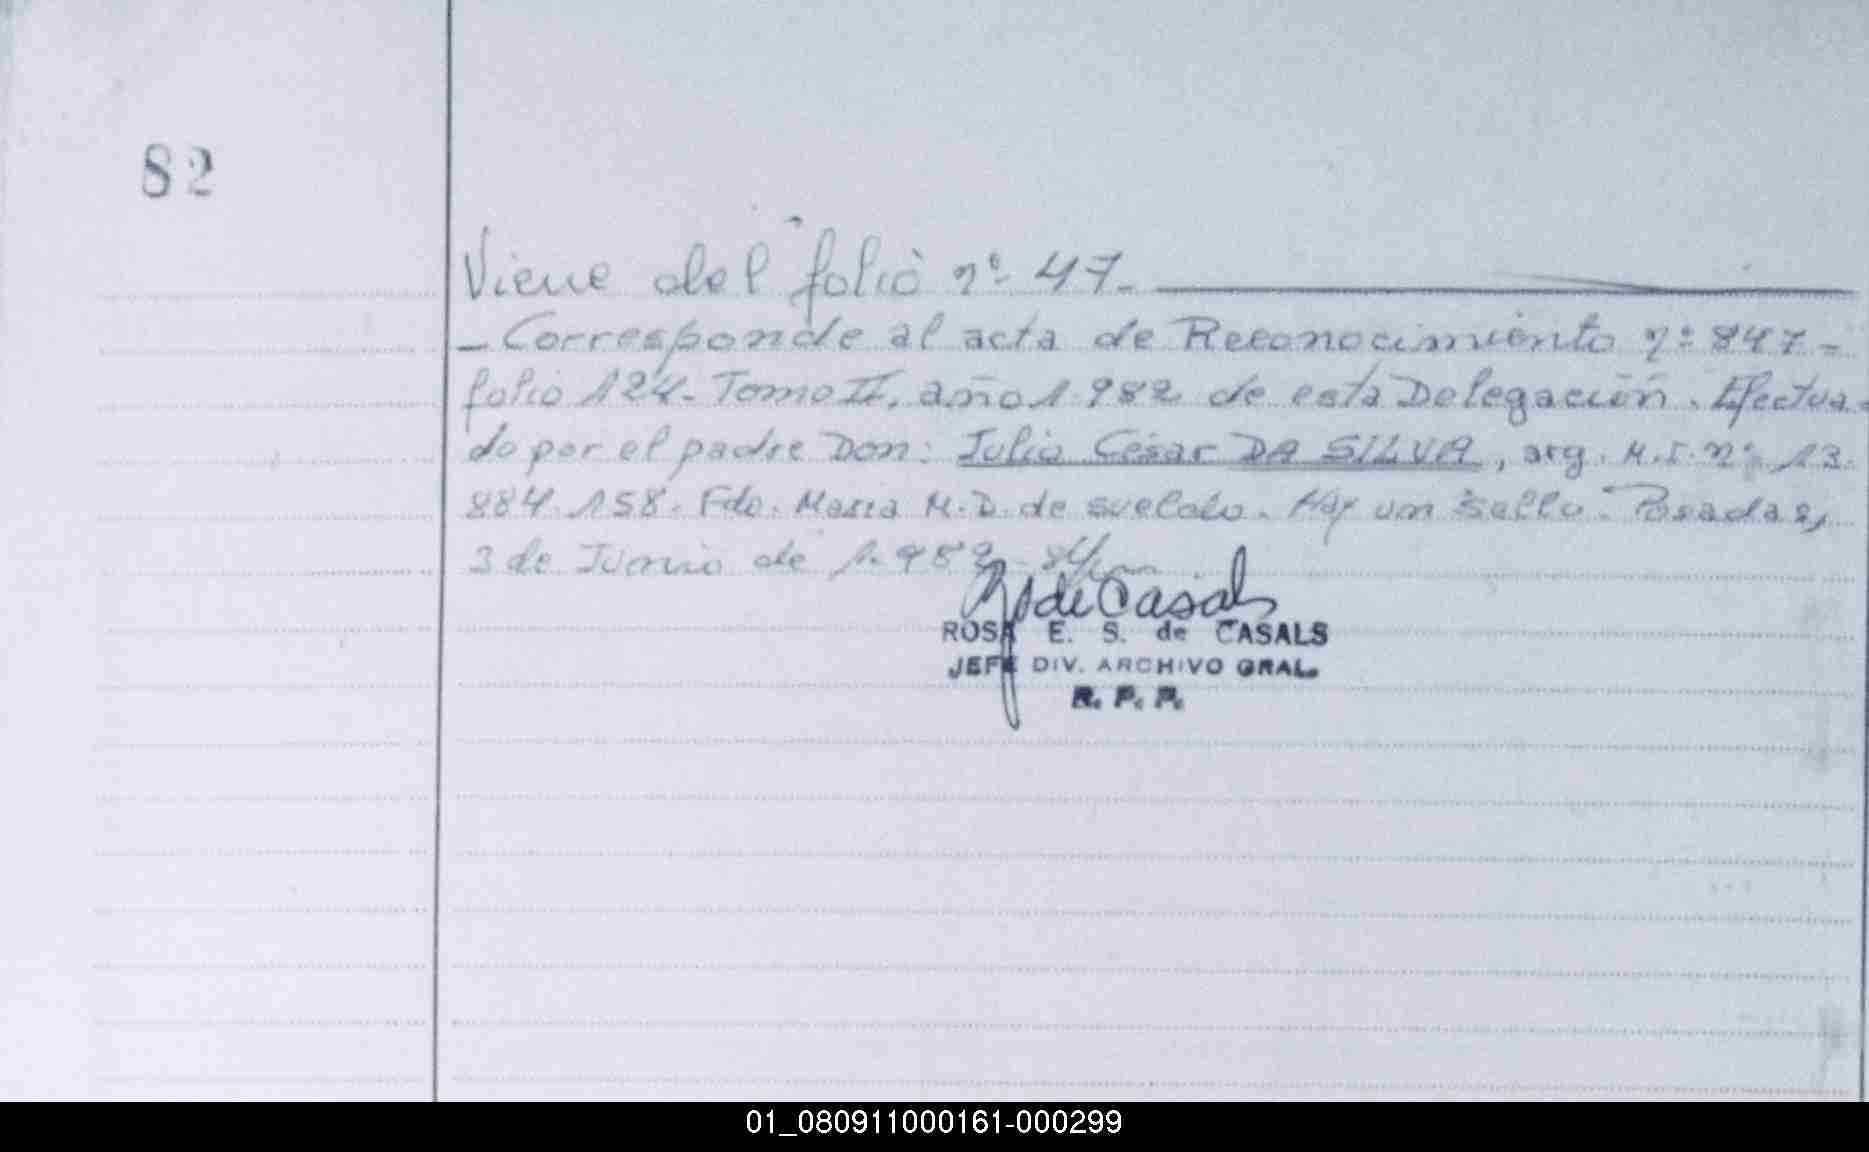 82
Viene del folio nº 47.-
- Corresponde al acta de Reconocimiento nº 847-
folio 124- Tomo II, año 1.982 de esta Delegación. Efectua-
do por el padre Don: Julio César DA SILVA, arg. M.I. nº 13.
884.158. Fdo. Maria M.D. de sueldo. Hay un sello. Posadas,
3 de Junio de 1.982
ROSA E. S. de CASALS
JEFE DIV. ARCHIVO GRAL.
R. P. P.
01_080911000161-000299